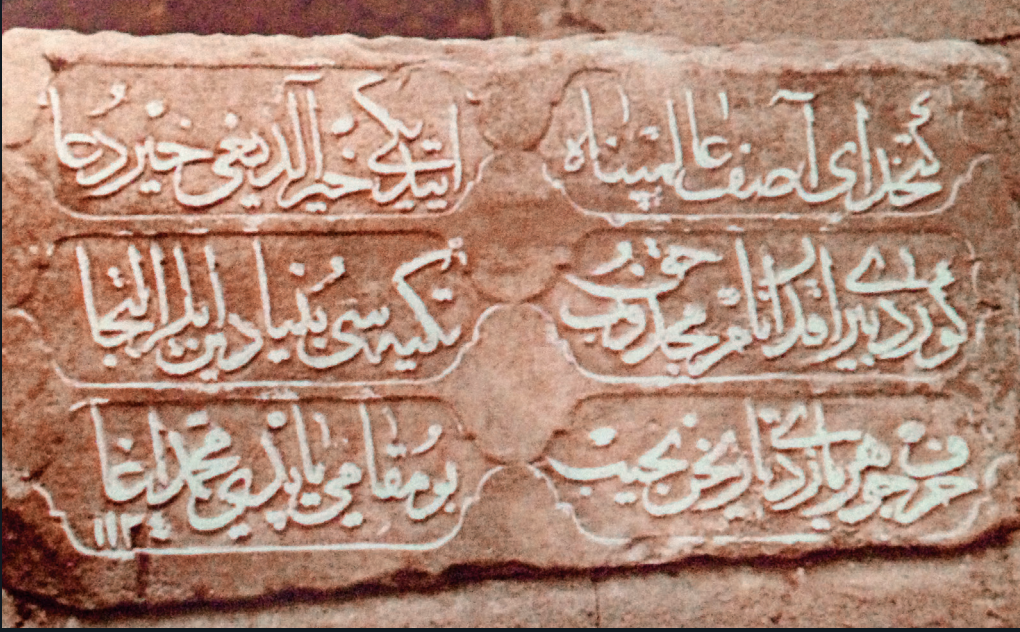 كتخداى آصف عالمپناه
ايتديكى خير الديغى خير دعا
كوردى بير مجذوب حق
تكيه سى بنياد دين ايلر التجا
حرف جوهر يازدى تاريخن نجيب
بو مقامى ياپدى محمد اغا
١١٣٤